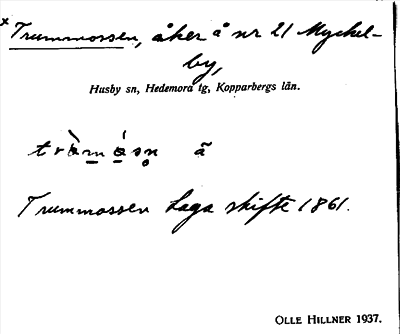 × Trummossen, åker å nr 21 Myckel-
by,
Husby sn, Hedemora tg, Kopparbergs län.
ã
Trummossen Laga skifte 1861.
OLLE HILLNER 1937.